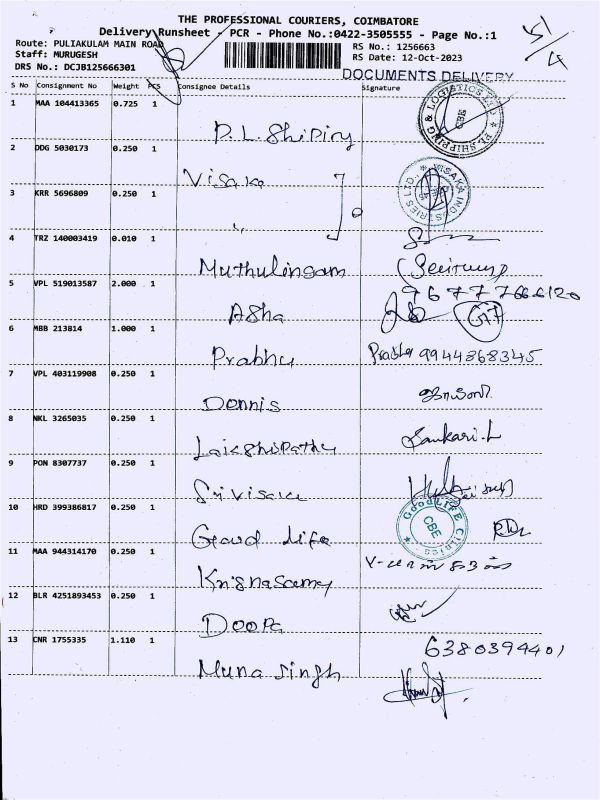 THE PROFESSIONAL COURIERS, COIMBATORE
Delivery Runsheet - PCR - Phone No.:0422-3505555 - Page No.:1
Route: PULIAKULAM MAIN ROAD
Staff: MURUGESH
DRS No.: DCJB125666301
RS No.: 1256663
RS Date: 12-Oct-2023
DOCUMENTS DELIVERY
S No Consignment No Weight PCS Consignee Details Signature
1 MAA 104413365 0.725 1
P.L. Shipiry
PL SHIPPING & LOGISTICS LTD CBE
2 DDG 5030173 0.250 1
Visaka
VISAKA INDUSTRIES LTD.
3 KRR 5696809 0.250 1
"
4 TRZ 140003419 0.010 1
Muthulingam
5 VPL 519013587 2.000 1
Asha
6 MBB 213814 1.000 1
Prabhu
Prabhu 9944368345
7 VPL 403119908 0.250 1
Dennis
8 NKL 3265035 0.250 1
Lakshipathy
Sankari.L
9 PON 8307737 0.250 1
Srivisaka
10 HRD 399386817 0.250 1
Good Life
GoodLIFE Clinics CBE
11 MAA 944314170 0.250 1
Krisnasamy
12 BLR 4251893453 0.250 1
Doopa
13 CNR 1755335 1.110 1
6380394401
Muna Singh